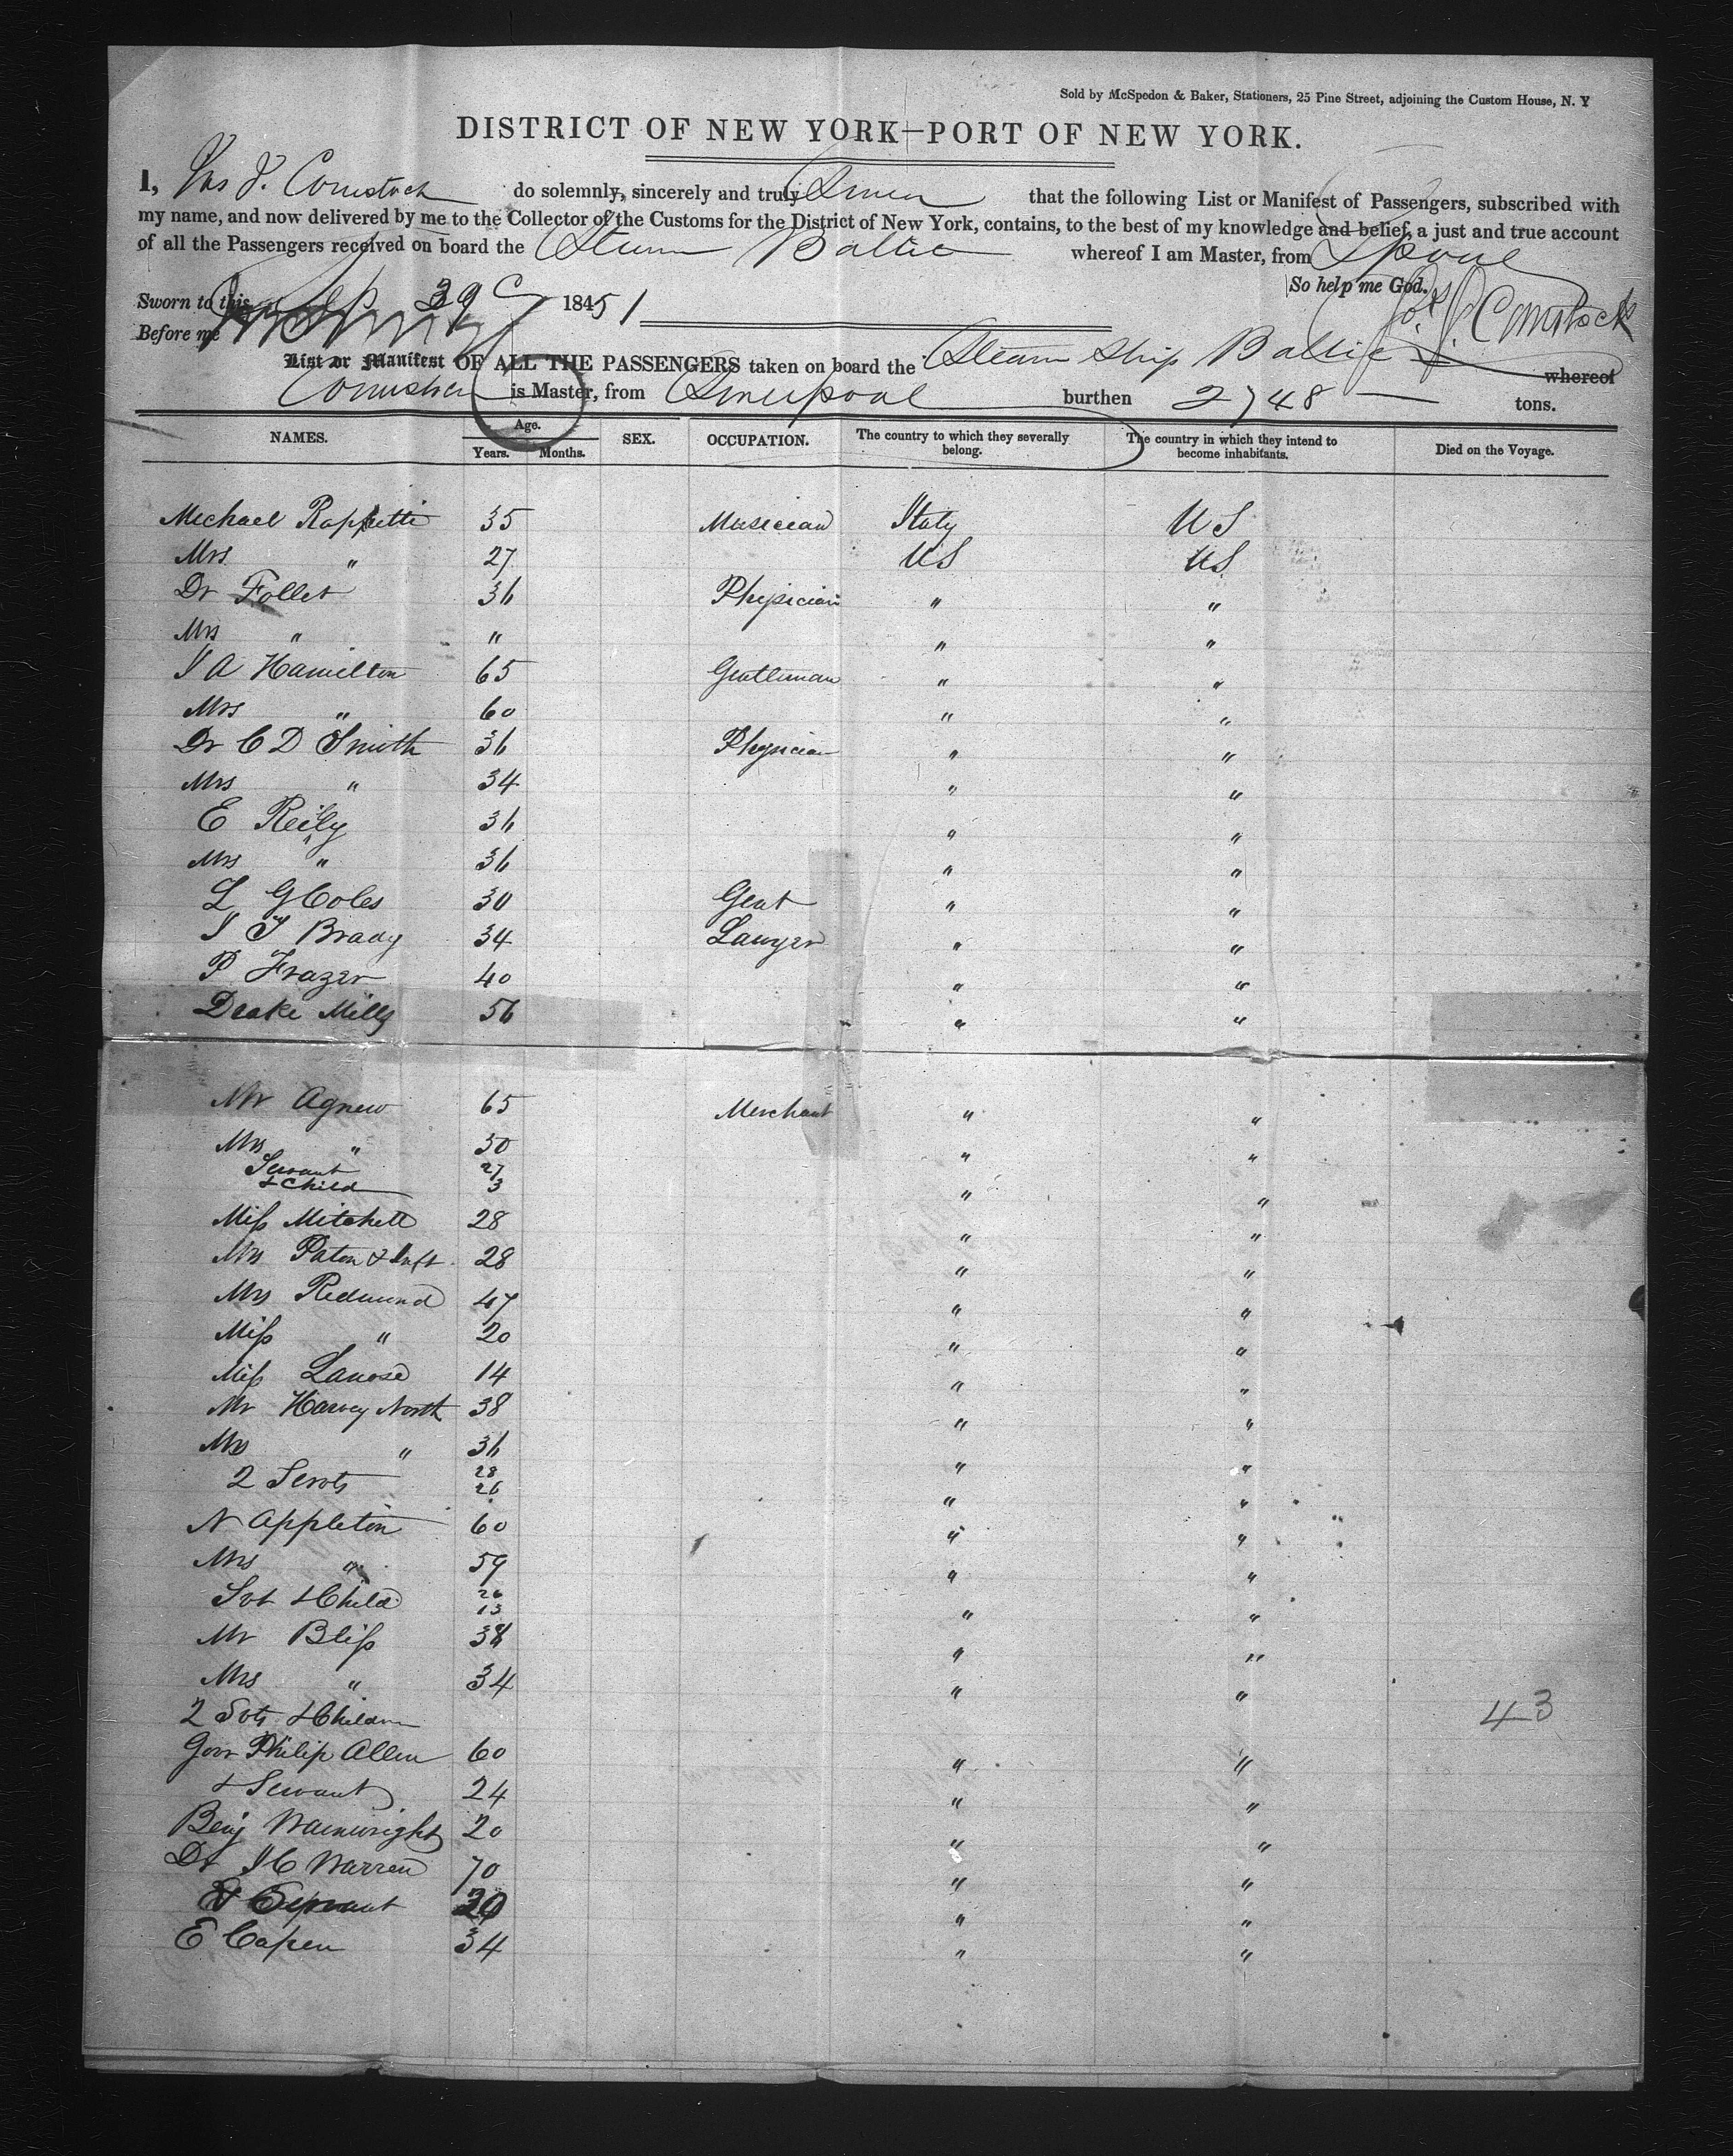 Sold by McSpedon & Baker, Stationers, 25 Pine Street, adjoining the Custom House, N. Y
DISTRICT OF NEW YORK—PORT OF NEW YORK.
I, Jos J. Comstock do solemnly, sincerely and truly Swear that the following List or Manifest of Passengers, subscribed with
my name, and now delivered by me to the Collector of the Customs for the District of New York, contains, to the best of my knowledge and belief, a just and true account
of all the Passengers received on board the Steam Baltic whereof I am Master, from Lpool
So help me God.
Sworn to this 29 1851 Jos J Comstock
Before me
List or Manifest OF ALL THE PASSENGERS taken on board the Steam Ship Baltic whereof
Comstock is Master, from Liverpool burthen 2748 tons.
NAMES. Age. Years. Months. SEX. OCCUPATION. The country to which they severally belong. The country in which they intend to become inhabitants. Died on the Voyage.
Michael 35 Musician Italy US
Mrs " 27 US US
Dr Follet 36 Physician " "
Mrs " " " "
J A Hamilton 65 Gentleman " "
Mrs " 60 " "
Dr C D Smith 36 Physician " "
Mrs " 34 " "
E Reily 36 " "
Mrs " 36 " "
L G Coles 30 Gent " "
J T Brady 34 Lawyer " "
P Frazer 40 " "
Drake Mills 56 " "
Mr Agnew 65 Merchant " "
Mrs " 30 " "
Servant 27
& Child 3 " "
Miss Mitchell 28 " "
Mrs Paton & Inft 28 " "
Mrs Redmund 47 " "
Miss " 20 " "
Miss 14 " "
Mr Harvey North 38 " "
Mrs " 36 " "
2 Servts 28 26 " "
N Appleton 60 " "
Mrs " 59 " "
Svt & Child 26 13 " "
Mr Bliss 38 " "
Mrs " 34 " "
2 Svts & Children 43
Govr Philip Allen 60 " "
& Servant 24 " "
Benj Wainwright 20 " "
Dr J C Warren 70 " "
& Servant 30 " "
E Capen 34 " "